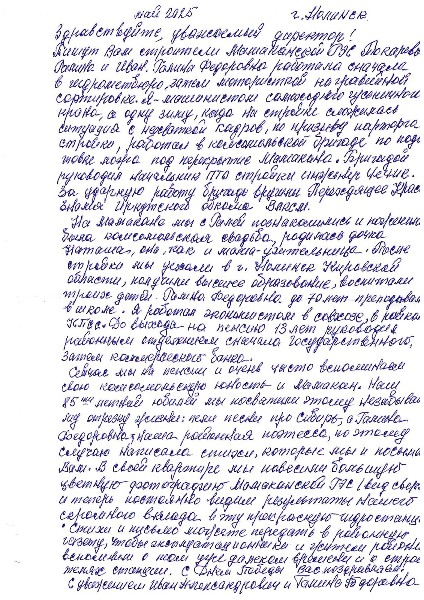 май 2025 г. Нолинск.
Здравствуйте, уважаемый директор!
Пишут Вам строители Мамаканской ГЭС Токарева
Галина и Иван. Галина Федоровна работала сначала
в гидрометбюро, затем мотористкой на гравийной
сортировке. Я – машинистом самоходного гусеничного
крана, а одну зиму, когда на стройке сложилась
ситуация с нехваткой кадров, по призыву парторга
стройки, работал в комсомольской бригаде по подго
товке ложа под перекрытие Мамакана. Бригадой
руководил начальник ПТО стройки инженер
За ударную работу бригаде вручили Переходящее Крас
Знамя Иркутского обкома ВЛКСМ!
На Мамакане мы с Галей познакомились и поженил
была комсомольская свадьба, родилась дочка
Наташа, она, как и мама – учительница. После
стройки мы уехали в г. Нолинск Кировской
области, получили высшее образование, воспитали
троих детей. Галина Федоровна до 70 лет преподавал
в школе. Я работал экономистом в совхозе, в райком
КПСС. До выхода на пенсию 13 лет руководил
районным отделением сначала государственного,
затем коммерческого банка.
Сейчас мы на пенсии и очень часто вспоминаем
свою комсомольскую юность и Мамакан. Наш
85 летний юбилей мы посвятили этому незабывае
му отрезку жизни: пели песни про Сибирь, а Галина
Федоровна, наша районная поэтесса, по этому
случаю написала стихи, которые мы и посылаем
Вам. В своей квартире мы повесили большую
цветную фотографию Мамаканской ГЭС (вид сверху
и теперь постоянно видим результаты нашего
скромного вклада в эту прекрасную гидростанцию
Стихи и письмо можете передать в районную
газету, чтобы эксплуатационники и жители района
вспомнили о том уже далеком времени и о строи
телях станции. С Днем Победы Вас поздравляем!
С уважением Иван Александрович и Галина Федоровна